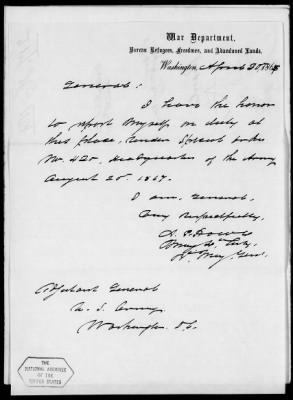 War Department,
Bureau Refugees, Freedmen, and Abandoned Lands,
Washington, April 20, 186
General:
I have the honor
to report myself on duty at
this place, under Special orders
No. 420, Headquarters of the Army
August 20. 1867.
I am, General,
Very Respectfully,
Adjutant General
U. S. Army
Washington D.C.
THE
NATIONAL ARCHIVES
OF THE
UNITED STATES